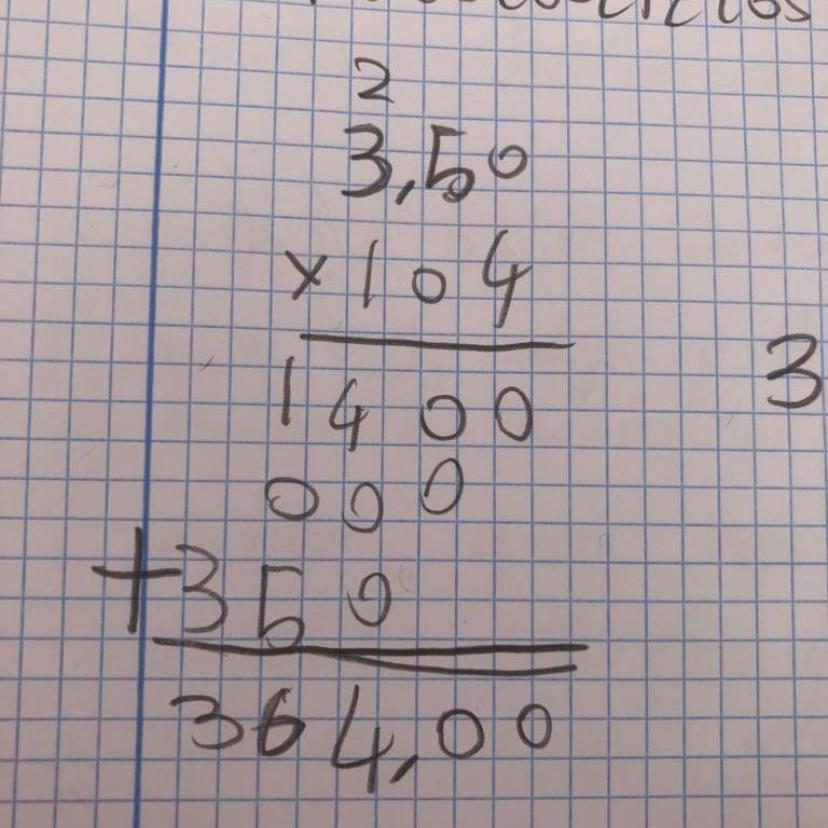 2
3,50
×104
1400
000
+350
364,00
3